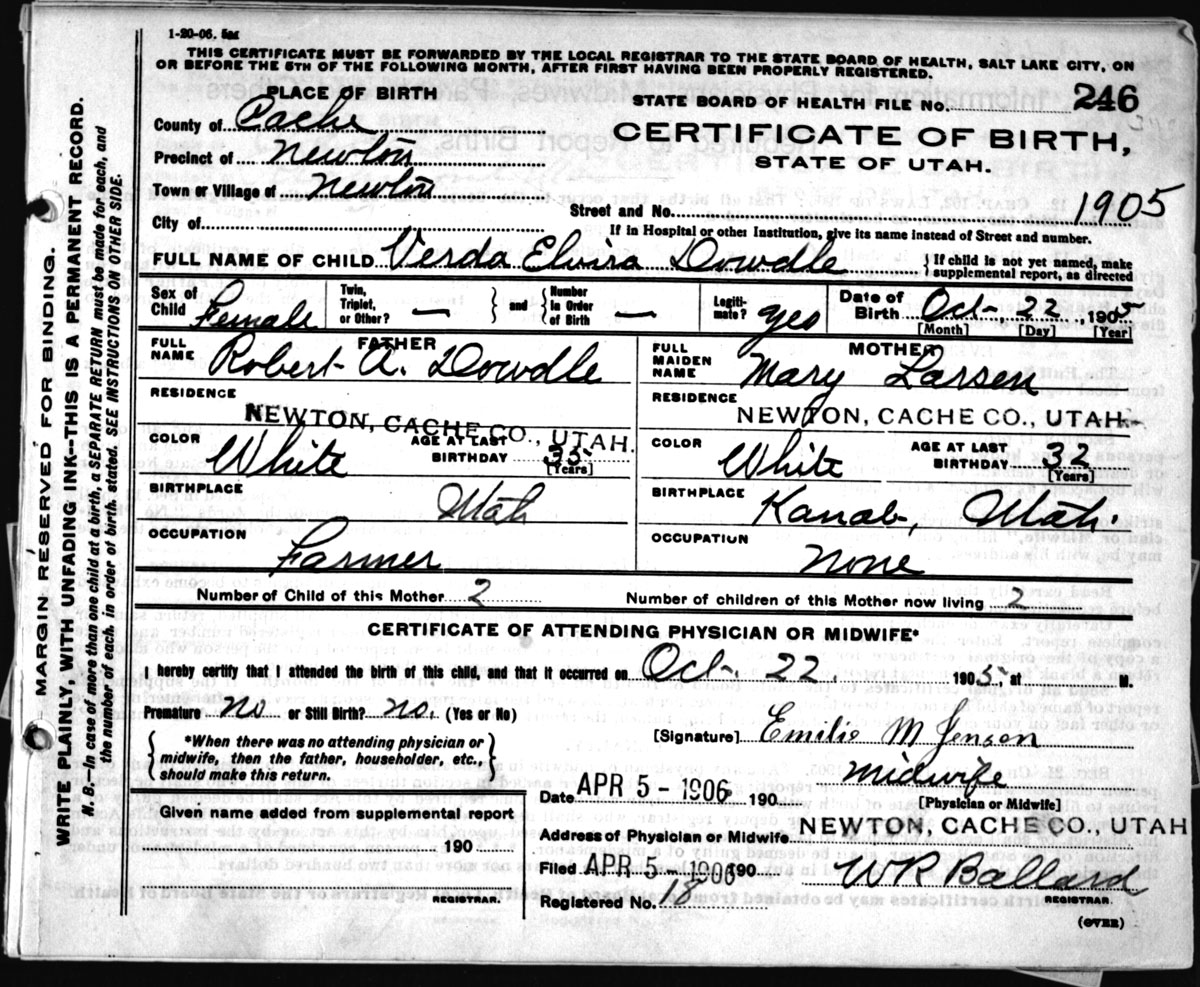 1-20-06. 5M
THIS CERTIFICATE MUST BE FORWARDED BY THE LOCAL REGISTRAR TO THE STATE BOARD OF HEALTH, SALT LAKE CITY, ON
OR BEFORE THE 5TH OF THE FOLLOWING MONTH, AFTER FIRST HAVING BEEN PROPERLY REGISTERED.
PLACE OF BIRTH
STATE BOARD OF HEALTH FILE No. 246
County of Cache
CERTIFICATE OF BIRTH,
Precinct of Newton
STATE OF UTAH.
Town or Village of Newton
Street and No. 1905
City of
If in Hospital or other Institution, give its name instead of Street and number.
FULL NAME OF CHILD Verda Elvira Dowdle } If child is not yet named, make supplemental report, as directed
Sex of Child Female Twin, Triplet, or Other? — } and { Number in Order of Birth — Legitimate? yes Date of Birth Oct. 22, 1905
[Month] [Day] [Year]
FATHER
MOTHER
FULL NAME Robert A. Dowdle
FULL MAIDEN NAME Mary Larsen
RESIDENCE
NEWTON, CACHE CO., UTAH.
RESIDENCE
NEWTON, CACHE CO., UTAH.
COLOR White AGE AT LAST BIRTHDAY 35 [Years]
COLOR White AGE AT LAST BIRTHDAY 32 [Years]
BIRTHPLACE Utah
BIRTHPLACE Kanab, Utah.
OCCUPATION Farmer
OCCUPATION None
Number of Child of this Mother 2
Number of children of this Mother now living 2
CERTIFICATE OF ATTENDING PHYSICIAN OR MIDWIFE*
I hereby certify that I attended the birth of this child, and that it occurred on Oct. 22. 1905, at M.
Premature no or Still Birth? no. (Yes or No)
{ *When there was no attending physician or
midwife, then the father, householder, etc.,
should make this return. }
[Signature] Emilie M Jenson
Midwife
[Physician or Midwife]
Date APR 5 - 1906 190
Given name added from supplemental report
190
REGISTRAR.
Address of Physician or Midwife NEWTON, CACHE CO., UTAH
Filed APR 5 - 1906 190. W R Ballard
REGISTRAR.
Registered No. 18
(OVER)
MARGIN RESERVED FOR BINDING.
WRITE PLAINLY, WITH UNFADING INK--THIS IS A PERMANENT RECORD.
N. B.—In case of more than one child at a birth, a SEPARATE RETURN must be made for each, and
the number of each, in order of birth, stated. SEE INSTRUCTIONS ON OTHER SIDE.